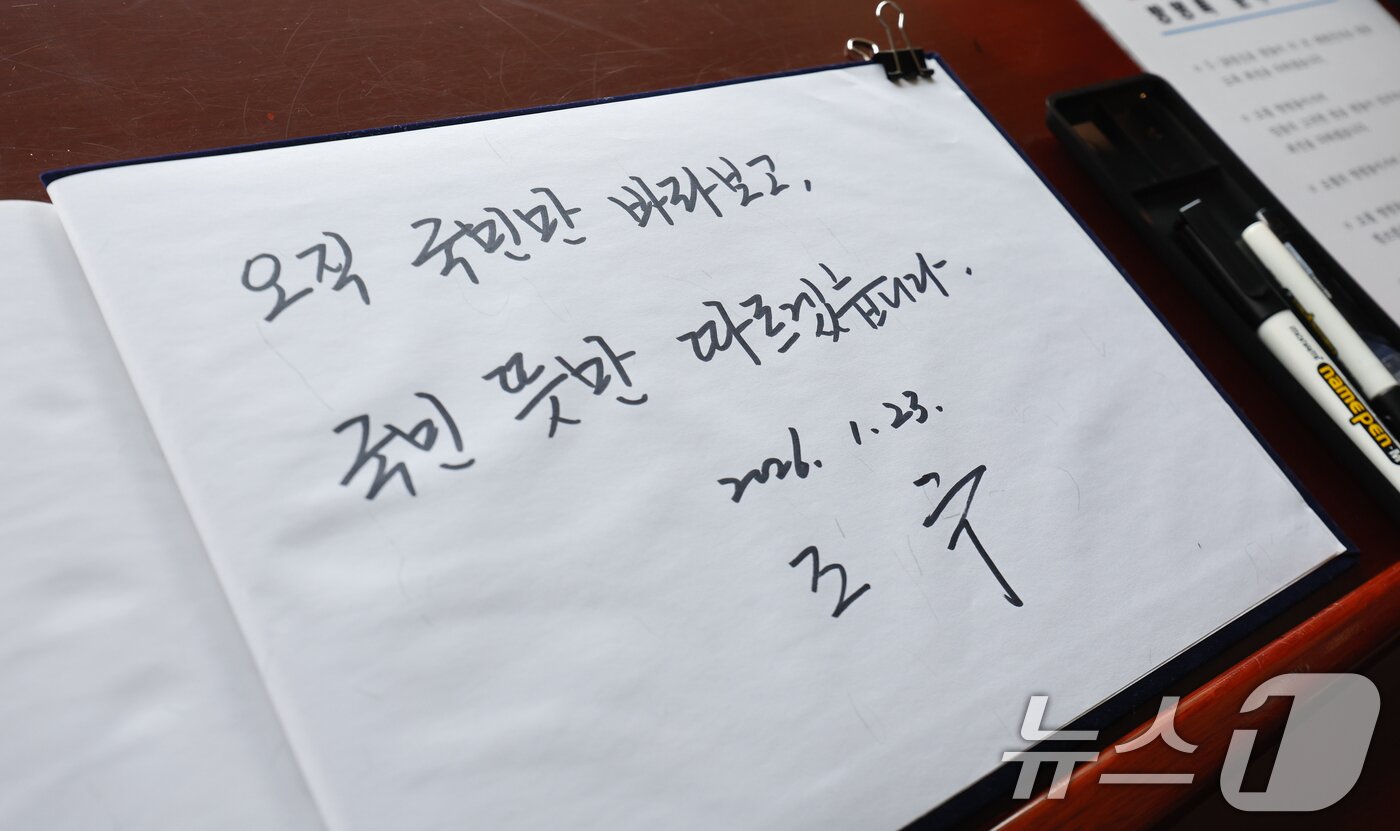 오직 국민만 바라보고,
국민 뜻만 따르겠습니다.
2026. 1. 23.
조 국
monami
namepen
뉴스1